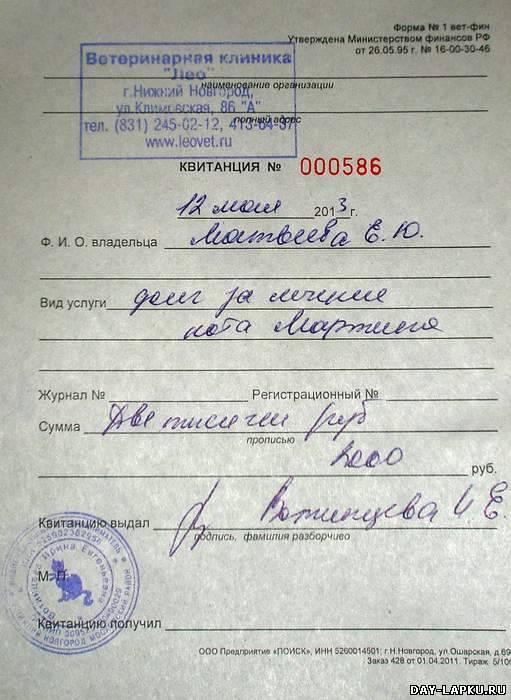 Форма № 1 вет-фин
Утверждена Министерством финансов РФ
от 26.05.95 г. № 16-00-30-46
Ветеринарная клиника
"Лео"
наименование организации
г.Нижний Новгород,
ул.Климовская, 86 "А"
полный адрес
тел. (831) 245-02-12, 413-64-37
www.leovet.ru
КВИТАНЦИЯ № 000586
12 мая 2013 г.
Ф. И. О. владельца Матвеева Е. Ю.
Вид услуги долг за лечение
кота Мартина
Журнал № Регистрационный №
Сумма Две тысячи руб
прописью
2000 руб.
Квитанцию выдал Вотинцева И Е.
подпись, фамилия разборчиво
Вотинцева Ирина Евгеньевна
М. П.
Квитанцию получил
ООО Предприятие «ПОИСК», ИНН 5260014501; г.Н.Новгород, ул.Ошарская, д.69
Заказ 428 от 01.04.2011. Тираж 5/100
DAY-LAPKU.RU